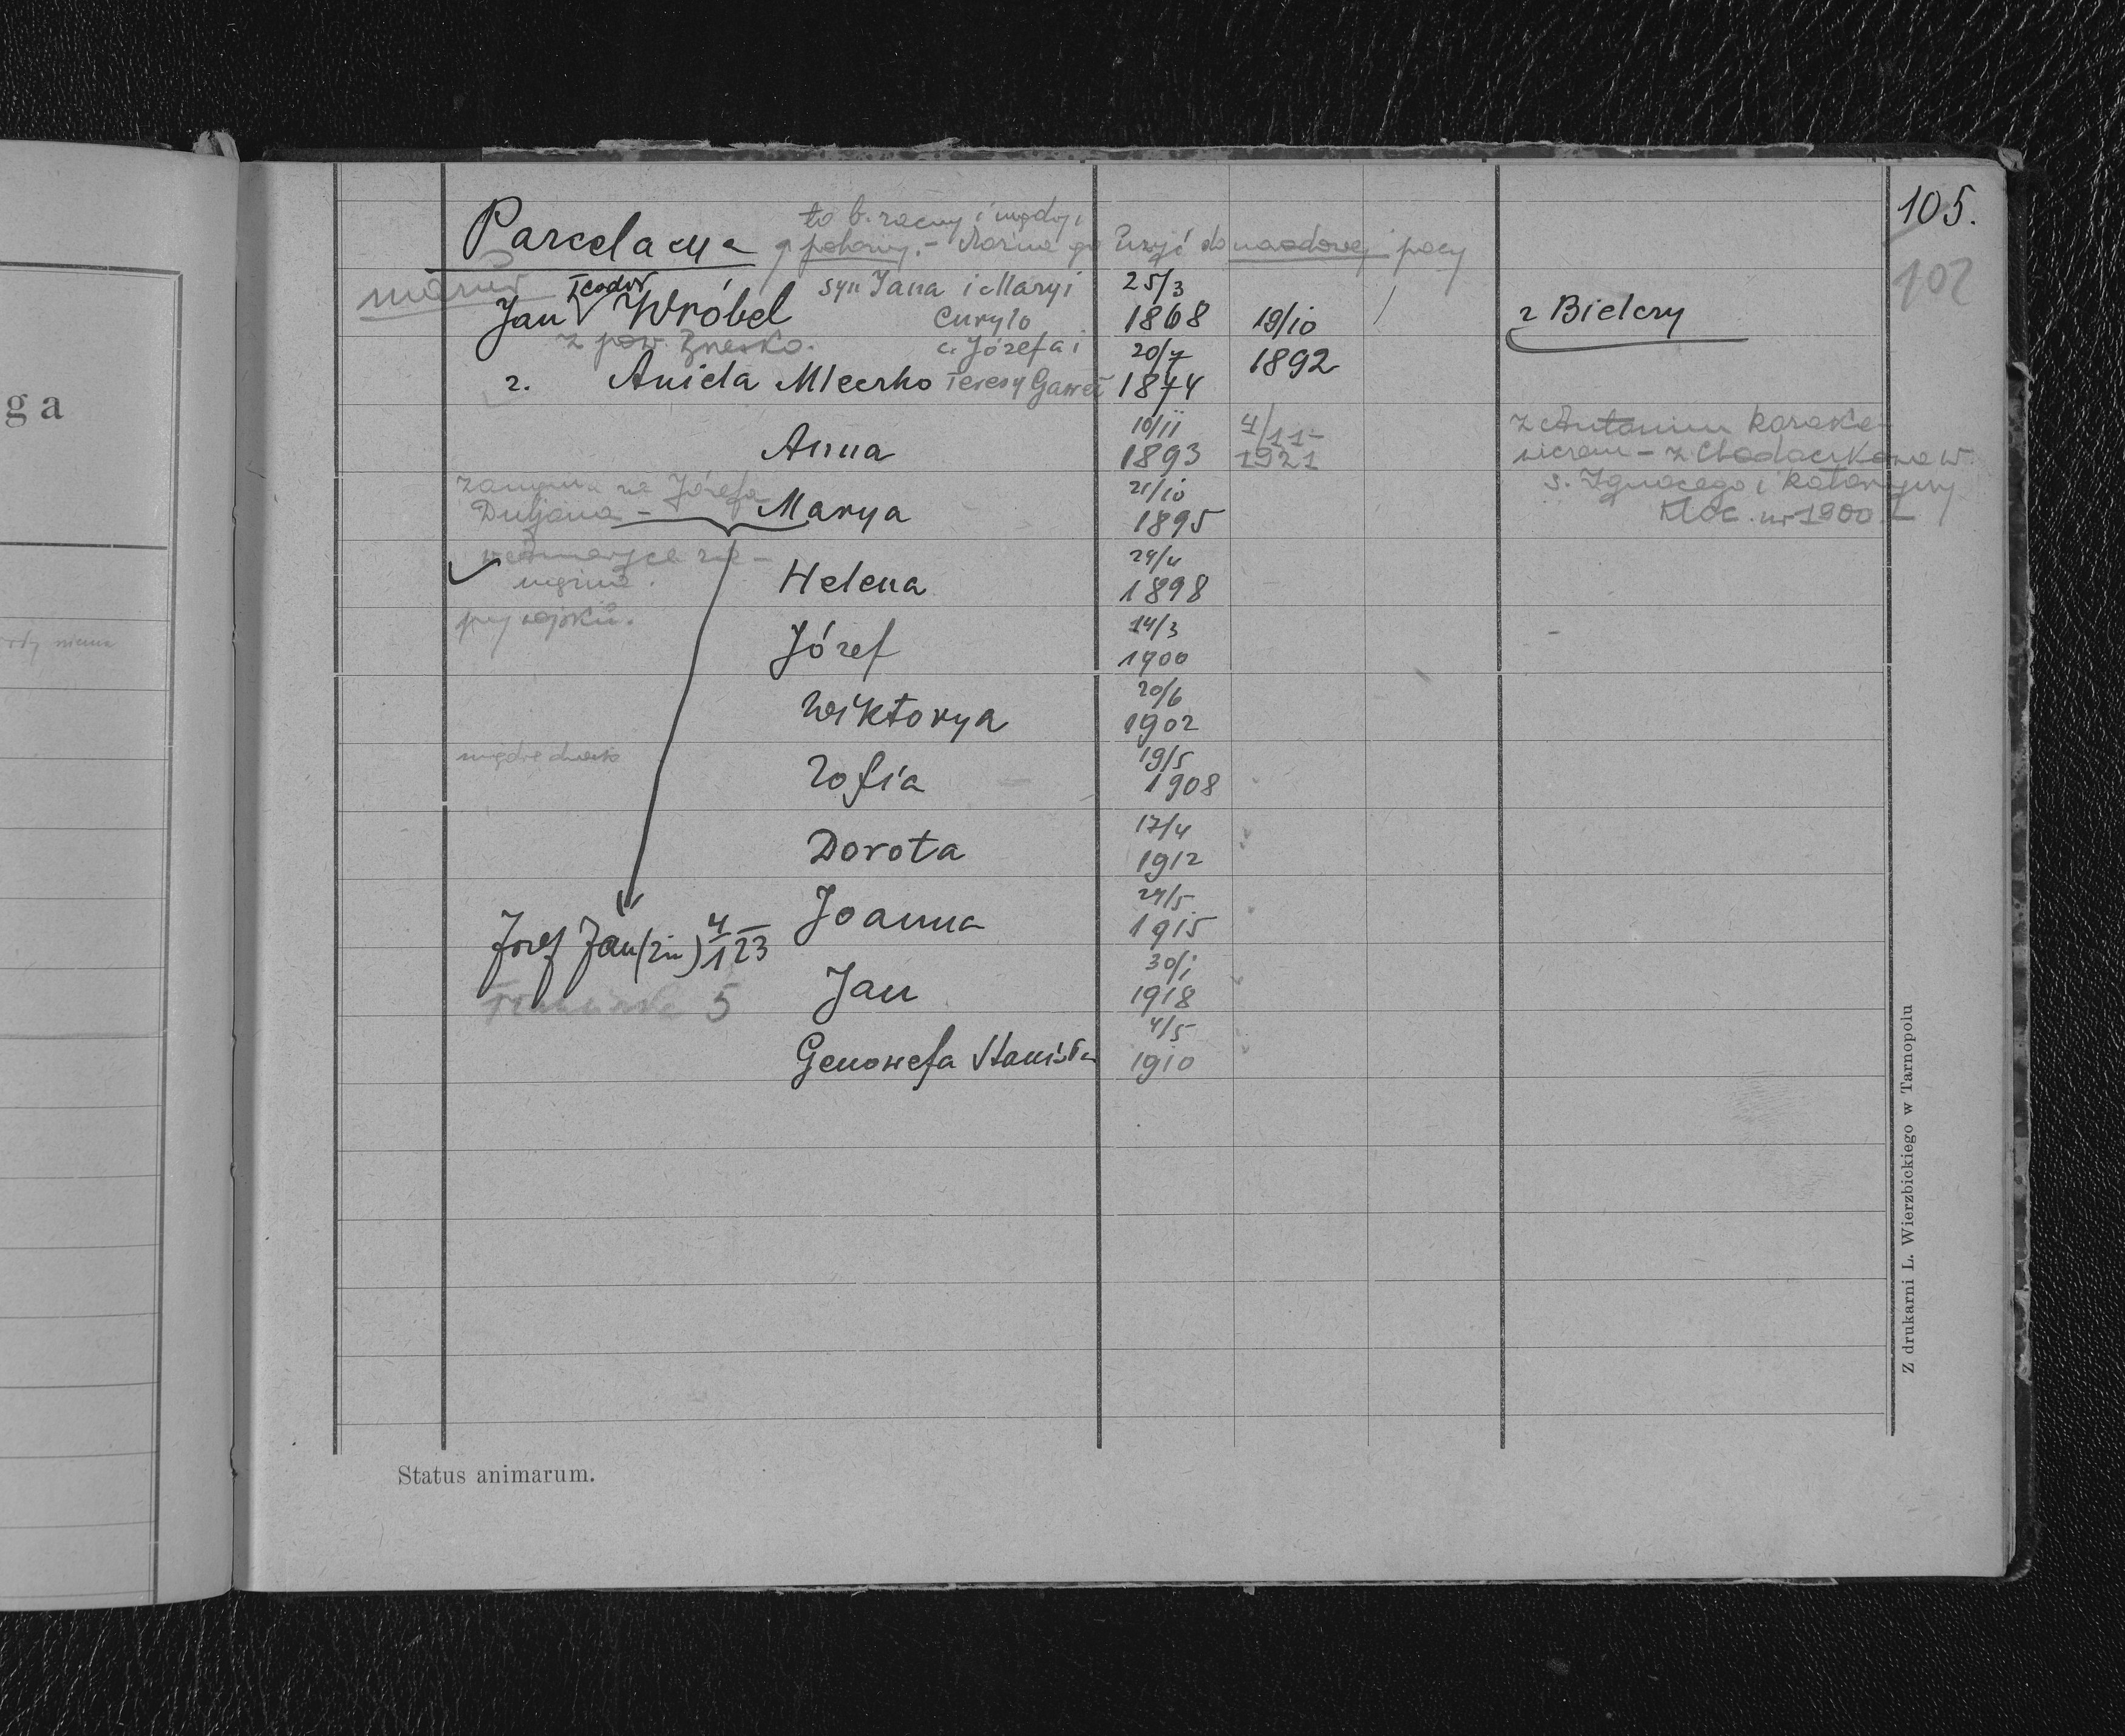 105.
102
to b. zacny i mądry i
Parcelacya
pobożny. - Można go użyć do narodowej pracy
Teodor syn Jana i Maryi 25/3
Jan Wróbel Curyło 1868 19/10 z Bielczy
z pow. Brzesko. c. Józefa i 20/7 1892
ż. Aniela Mleczko Teresy Gaweł 1874
10/11 4/11 - z Antonim
Anna 1893 1921 z Chodaczkowa w.
za Józefa 21/10 s. Ignacego i Katarzyny
Duljana - Marya 1895 Kloc. ur 1900 -
24/4
Helena 1898
przy wojsku. 14/3
Józef 1900
20/6
Wiktorya 1902
19/5
Zofia 1908
17/4
Dorota 1912
24/5
Joanna 1915
Józef Jan 4/1 23
30/1
Jan 1918
5
4/5
Genowefa Stanisła 1910
Status animarum.
Z drukarni L. Wierzbickiego w Tarnopolu
ga